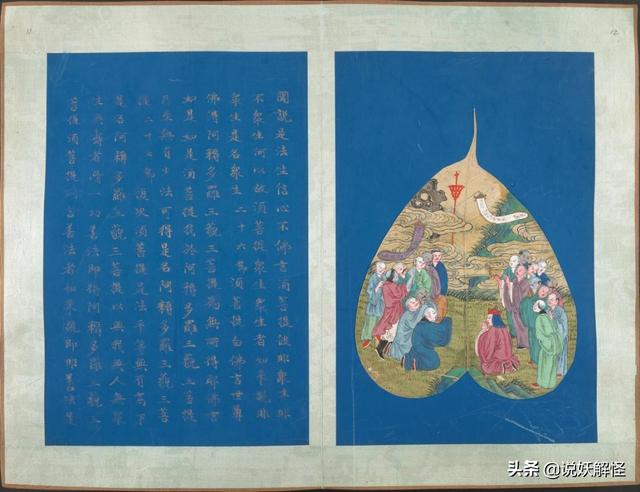 11
12
聞說是法生信心不佛言須菩提彼非眾生非
不眾生何以故須菩提眾生眾生者如來說非
眾生是名眾生 二十六 須菩提白佛言世尊
佛得阿耨多羅三藐三菩提為無所得耶佛言
如是如是須菩提我於阿耨多羅三藐三菩提
乃至無有少法可得是名阿耨多羅三藐三菩
提 二十七 復次須菩提是法平等無有高下
是名阿耨多羅三藐三菩提以無我無人無眾
生無壽者修一切善法即得阿耨多羅三藐三
菩提須菩提所言善法者如來說即非善法是
头条 @说妖解怪